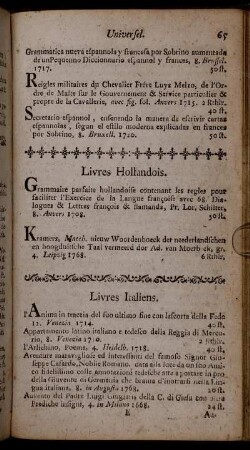 Universel. 65
Grammatica nueva espannola y francesa por Sobrino aumentada
de un Pequenno Diccionario espannol y frances, 8. Brussel.
1717. 50ſt.
Reigles militaires du Chevalier Frére Luys Melzo, de l'Or-
dre de Malte ſur le Gouvernement & Service particulier &
propre de la Cavallerie, avec fig. fol. Anvers 1615. 2 Rthlr.
40 ſt.
Secretario espannol, ensennando la manera de escrivir cartas
espannolas, segun el estilo moderno explicadas en frances
por Sobrino, 8. Bruxell. 1720. 50 ſt.
Livres Hollandois.
Grammaire parfaite hollandoise contenant les regles pour
faciliter l'Exercice de la Langue françoise avec 68. Dia-
logues & Lettres françois & flamands, Pr. Lor. Schilter,
8. Anvers 1708. 50 ſt.
Kramers, Matth. nieuw Woordenboeck der neederlandſchen
en hoogduitſche Taal vermeerd dor Ad. van Moerb ck, gr.
4. Leipzig 1768. 6 Rthlr.
Livres Italiens.
l'Anima in trattia del ſuo ultimo fine con laſcorta della Fede
12. Venezia 1714. 40 ſt.
Appartamento latino italiano e tedesco della Reggia di Mercu-
rio, 8. Venezia 1720. 2 Rthlr.
l'Arlichino, Poema, 4. Heidelb. 1718. 40 ſt.
Avventure maravigliose ed intereſſanti del famoſo Signor Giu-
ſeppe
della Gioventù di Germania che brama d'inſtruirſi nella
lingua italiana, 8. in Auguſta 1768. 20 ſt.
Avvento del Padre Luigi Giuglaris della C. di Gieſu con altre
Prediche inſigni, 4. in Milano 1668. 24 ſt.
E